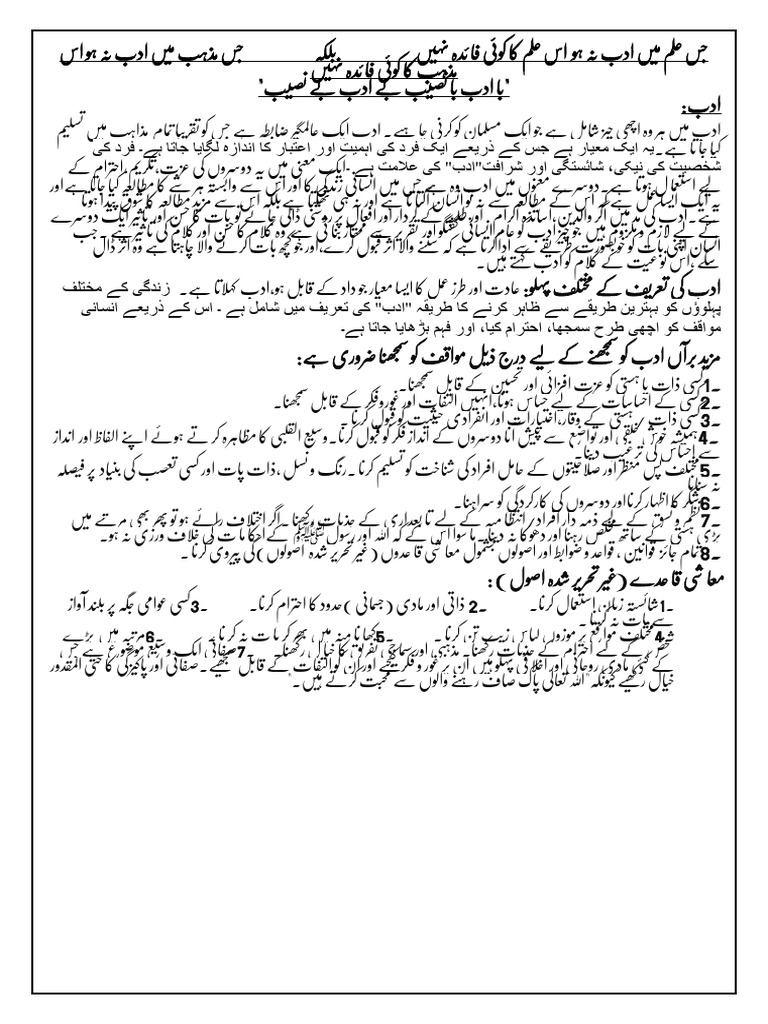 جس علم میں ادب نہ ہو اس علم کا کوئی فائدہ نہیں بلکہ جس مذہب میں ادب نہ ہو اس
مذہب کا کوئی فائدہ نہیں
'با ادب با نصیب بے ادب بے نصیب'
ادب:
ادب میں ہر وہ اچھی چیز شامل ہے جو ایک مسلمان کو کرنی چاہیے۔ ادب ایک عالمگیر ضابطہ ہے جس کو تقریبا تمام مذاہب میں تسلیم
کیا جاتا ہے۔ یہ ایک معیار ہے جس کے ذریعے ایک فرد کی اہمیت اور اعتبار کا اندازہ لگایا جاتا ہے۔ فرد کی
شخصیت کی نیکی، شائستگی اور شرافت"ادب" کی علامت ہے۔ ایک معنی میں یہ دوسروں کی عزت، تکریم، احترام کے
لیے استعمال ہوتا ہے۔ دوسرے معنوں میں ادب وہ ہے جس میں انسانی زندگی کا اور اس سے وابستہ ہر شے کا مطالعہ کیا جاتا ہے اور
یہ ایک ایسا عمل ہے کہ اس کے مطالعہ سے نہ تو انسان اکتاتا ہے اور نہ ہی تھکتا ہے بلکہ اس سے مزید مطالعہ کا شوق پیدا ہوتا
ہے۔ ادب کی مد میں اگر والدین، اساتذہ اکرام، اور طلبہ کے کردار اور افعال پر روشنی ڈالی جائے تو بات کا حسن اور تاثیر ایک دوسرے
کے لیے لازم و ملزوم ہیں۔ جو چیز ادب کو عام انسانی گفتگو اور تقریر سے ممتاز بناتی ہے وہ کلام کا حسن اور کلام کی تاثیر ہے۔ جب
انسان اپنی بات کو خوبصورت طریقے سے ادا کرتا ہے کہ سننے والا اثر قبول کرے، اور جو کچھ بات کرنے والا چاہتا ہے وہ اثر ڈال
سکے، اس نوعیت کے کلام کو ادب کہتے ہیں۔
ادب کی تعریف کے مختلف پہلو: عادت اور طرز عمل کا ایسا معیار جو داد کے قابل ہو، ادب کہلاتا ہے۔ زندگی کے مختلف
پہلوؤں کو بہترین طریقے سے ظاہر کرنے کا طریقہ "ادب" کی تعریف میں شامل ہے۔ اس کے ذریعے انسانی
مواقف کو اچھی طرح سمجھا، احترام کیا، اور فہم بڑھایا جاتا ہے۔
مزید برآں ادب کو سمجھنے کے لیے درج ذیل مواقف کو سمجھنا ضروری ہے:
1۔ کسی ذات یا ہستی کو عزت افزائی اور تحسین کے قابل سمجھنا۔
2۔ کسی کے احساسات کے لیے حساس ہونا، انہیں التفات اور غور و فکر کے قابل سمجھنا۔
3۔ کسی ذات یا ہستی کے وقار، اختیارات اور انفرادی حیثیت کو قبول کرنا۔
4۔ ہمیشہ خوش خلقی اور تواضع سے پیش آنا دوسروں کے انداز فکر کو قبول کرنا۔ وسیع القلبی کا مظاہرہ کرتے ہوئے اپنے الفاظ اور انداز
سے احساس کی ترغیب دینا۔
5۔ مختلف پس منظر اور صلاحیتوں کے حامل افراد کی شناخت کو تسلیم کرنا۔ رنگ و نسل، ذات پات اور کسی تعصب کی بنیاد پر فیصلہ
نہ سنانا
6۔ شکر کا اظہار کرنا اور دوسروں کی کارکردگی کو سراہنا۔
7۔ نظم و نسق کے لیے ذمہ دار افراد / انتظامیہ کے لیے تابعداری کے جذبات رکھنا۔ اگر اختلاف رائے ہو تو پھر بھی مرتبے میں
بڑی ہستی کے ساتھ مخلص رہنا اور دھوکا نہ دینا۔ ماسوا اس کے کہ اللہ اور رسول ﷺ کے احکامات کی خلاف ورزی نہ ہو۔
8۔ تمام جائز قوانین، قواعد و ضوابط اور اصولوں بشمول معاشی قاعدوں (غیر تحریر شدہ اصولوں) کی پیروی کرنا۔
معاشی قاعدے (غیر تحریر شدہ اصول):
1۔ شائستہ زبان استعمال کرنا۔ 2۔ ذاتی اور مادی (جسمانی) حدود کا احترام کرنا۔ 3۔ کسی عوامی جگہ پر بلند آواز
سے بات نہ کرنا۔
4۔ مختلف مواقع پر موزوں لباس زیب تن کرنا۔ 5۔ کھانا منہ میں بھر کر بات نہ کرنا۔ 6۔ مرتبہ میں بڑے
شخص کے لیے احترام کے جذبات رکھنا۔ مذہبی اور سماجی تفریق کا خیال رکھنا۔ 7۔ صفائی ایک وسیع موضوع ہے جس
کے کئی مادی روحانی اور اخلاقی پہلو ہیں ان پر غور و فکر کیجئے اور ان کو التفات کے قابل سمجھیے۔ صفائی اور پاکیزگی کا حتی المقدور
خیال رکھیے کیونکہ "اللہ تعالی پاک صاف رہنے والوں سے محبت کرتے ہیں۔"